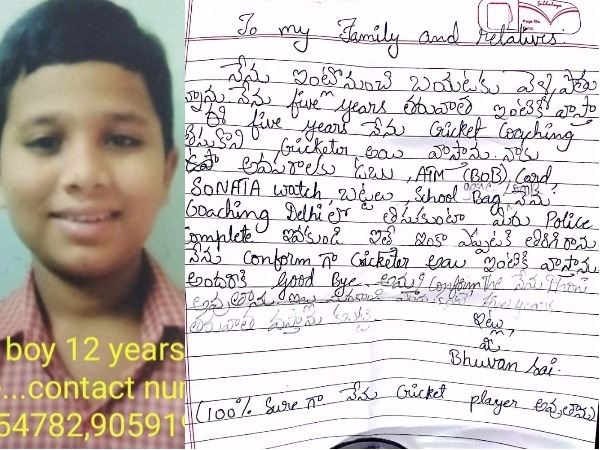 To my Family and relatives.
నేను ఇంటినుంచి బయటకు వెళ్ళిపోతు
న్నాను. నేను five years తరువాత ఇంటికి వస్తా
ఈ five years నేను Cricket Coaching
తీసుకొని Cricketer అయి వస్తాను. నాకు
అవసరాలకు డబ్బు, ATM (BOB) Card
SONATA watch, బట్టలు, School Bag, నేను
Coaching Delhi లో తీసుకుంటా మీరు Police
Complete ఇవ్వకండి ఇంకా ఎప్పటికి తిరిగిరాను
నేను Conform గా Cricketer అయి ఇంటికి వస్తాను
అందరికి Good Bye. Conform నేను
five years
తరువాత వస్తాను
ఇట్లు,
మీ
Bhuvan Sai.
(100% Sure గా నేను Cricket player అవ్వుతాను)
boy 12 years
...contact nu
54782,90591